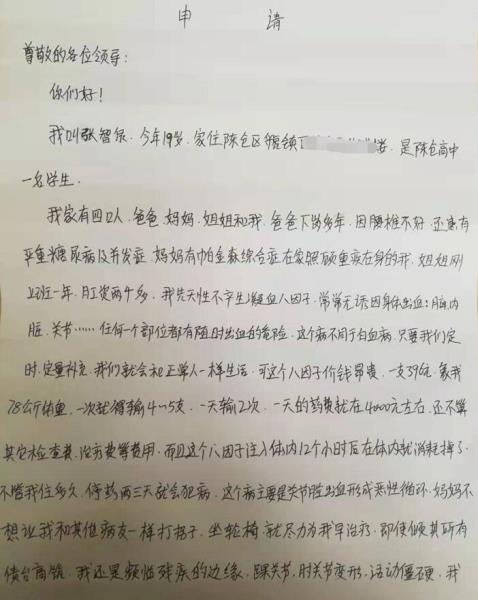 申 请
尊敬的各位领导:
你们好!
我叫张智泉.今年19岁.家住陈仓区虢镇 楼.是陈仓高中
一名学生.
我家有四口人.爸爸.妈妈.姐姐和我.爸爸下岗多年.因腰椎不好.还患有
严重糖尿病及并发症.妈妈有帕金森综合症在家照顾重疾在身的我.姐姐刚
上班一年.月工资两千多.我先天性不产生凝血八因子.常常无诱因身体出血:脑.内
脏.关节……任何一个部位都有随时出血的危险.这个病不同于白血病.只要我们定
时.定量补充.我们就会和正常人一样生活.可这个八因子价钱昂贵.一支39元.象我
78公斤体重.一次就得输4~5支.一天输2次.一天的药费就在4000元左右.还不算
其它检查费.治疗费等费用.而且这个八因子注入体内12个小时后在体内就消耗掉了.
不管我住多久.停药两三天就会犯病.这个病主要是关节腔出血形成恶性循环.妈妈不
想让我和其他病友一样打拐子.坐轮椅.就尽力为我早治疗.即使倾其所有
债台高筑.我还是频临残疾的边缘.踝关节.肘关节变形.活动僵硬.我